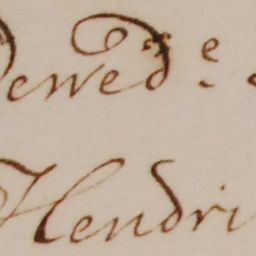 Dewed.e
Hendri